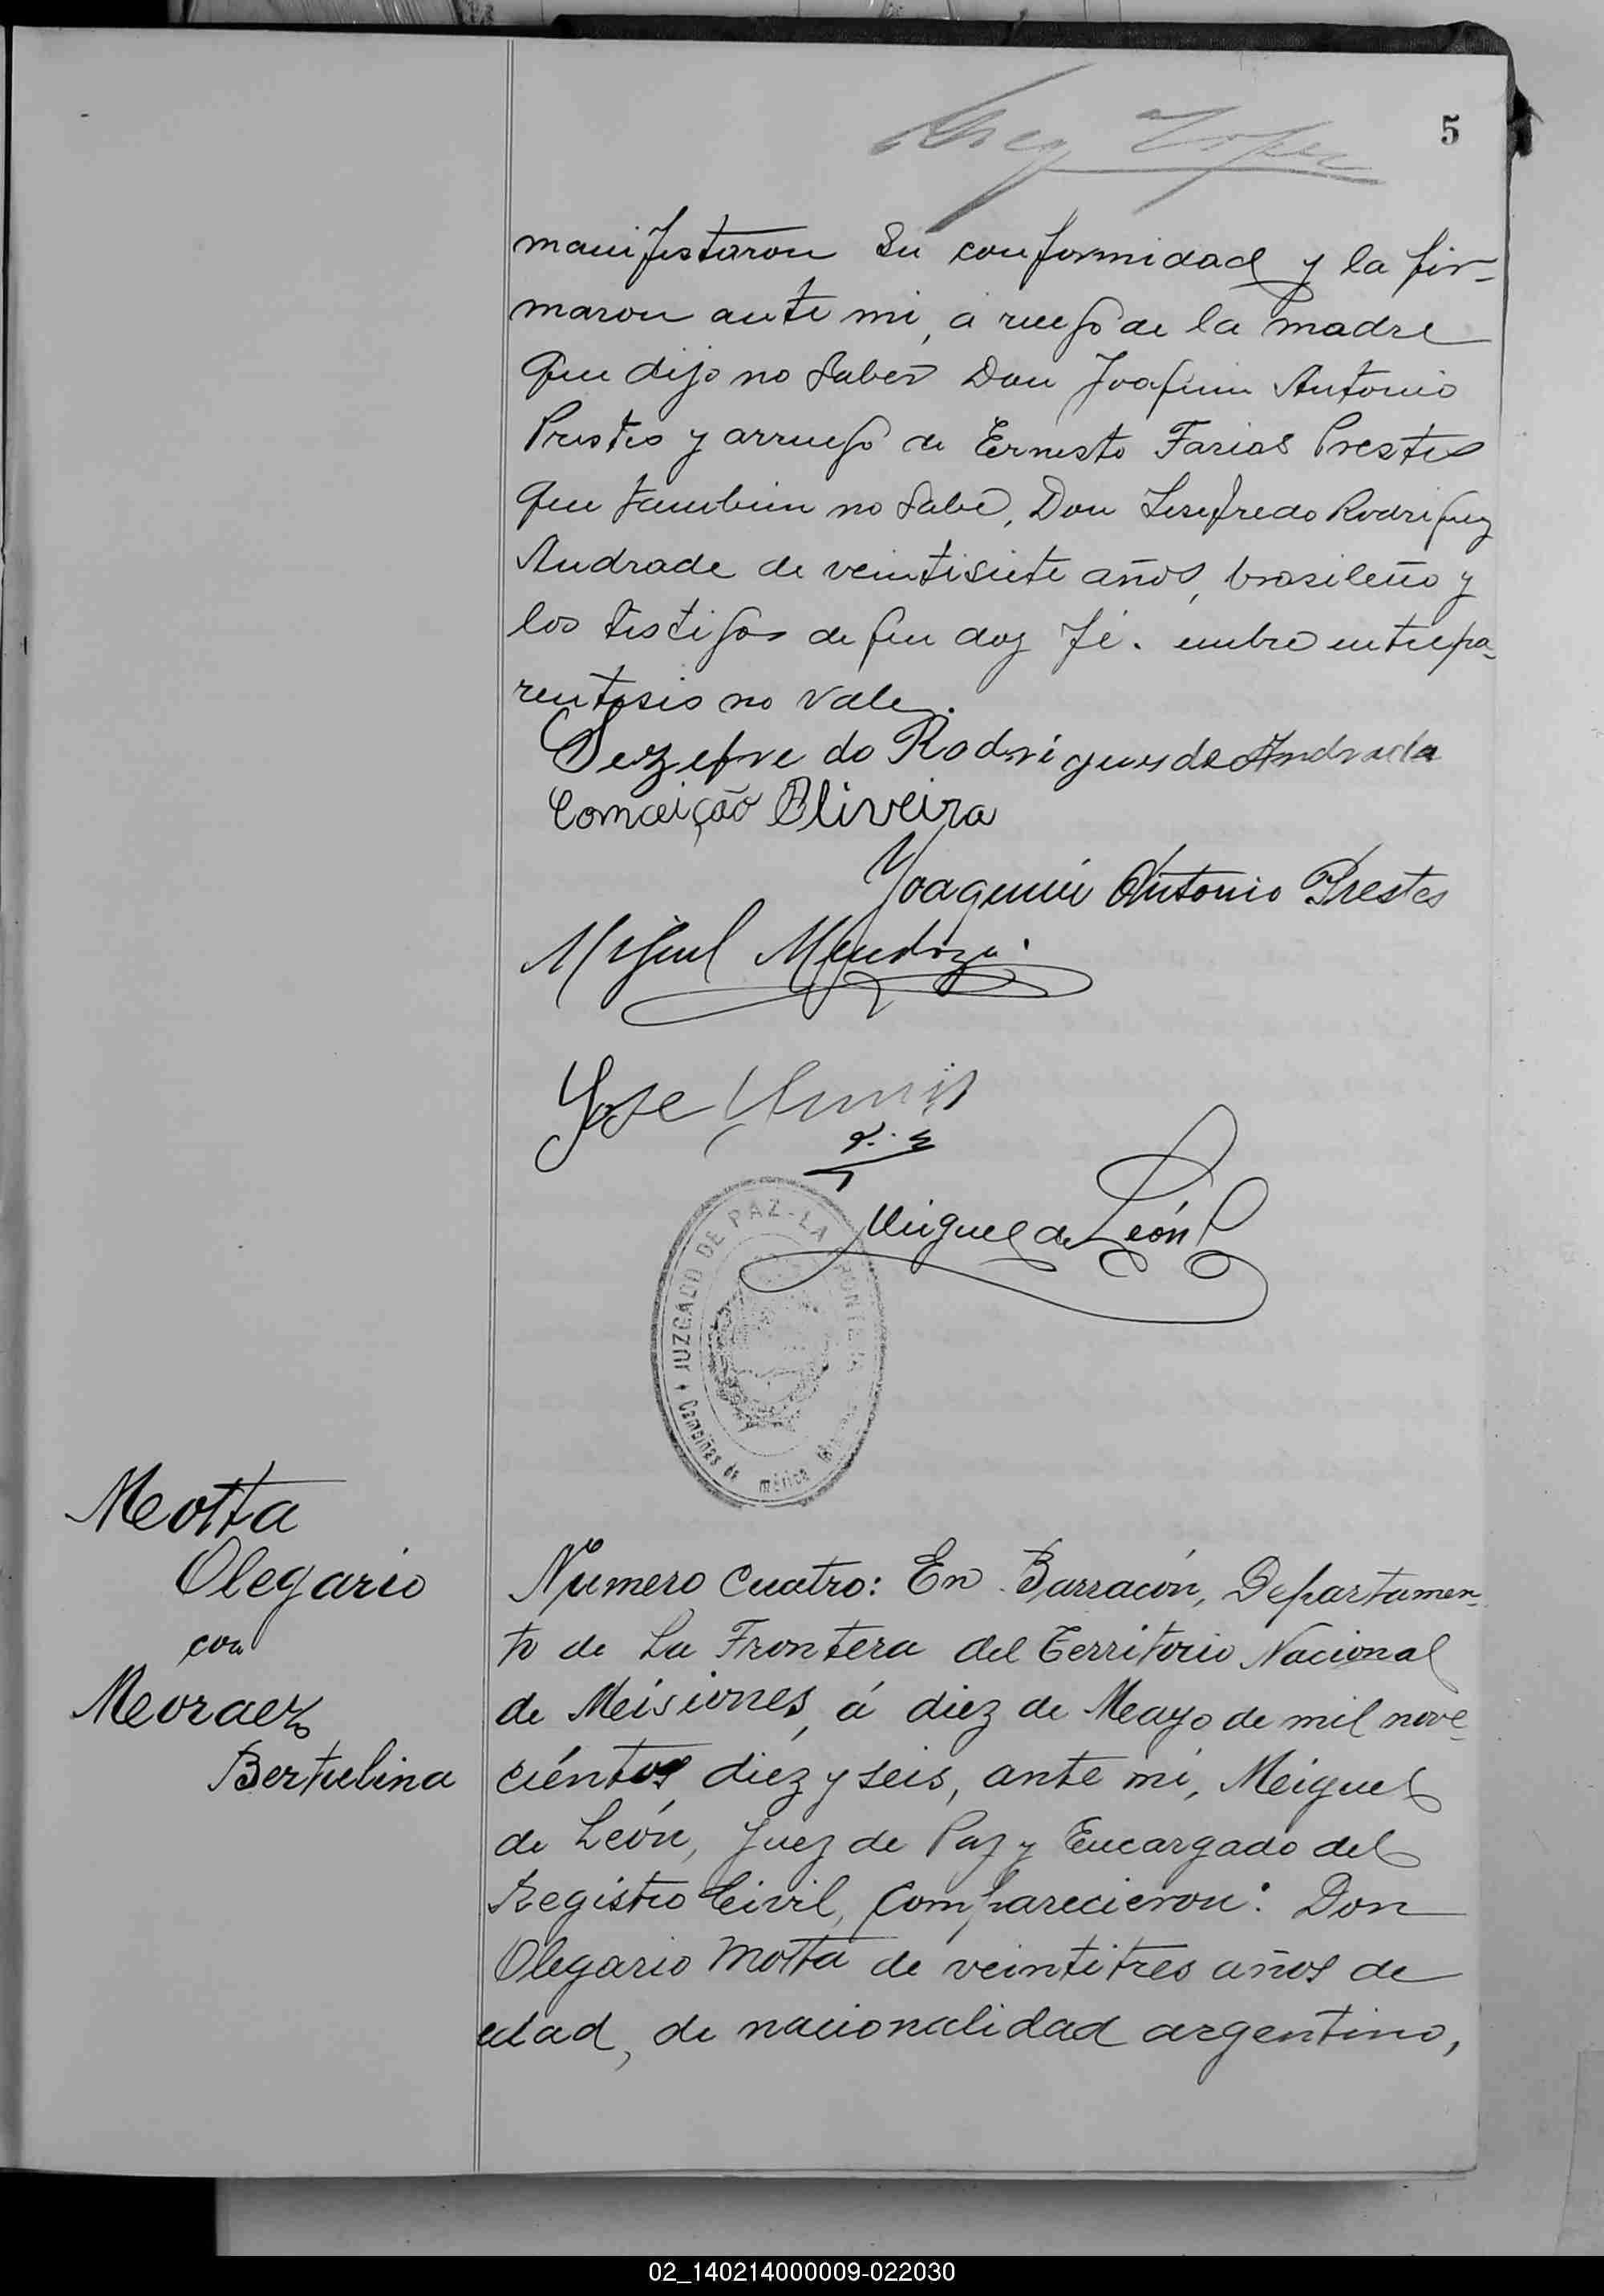 5
manifestaron su conformidad y la fir-
maron ante mi, a ruego de la madre
que dijo no saber Don Joaquin Antonio
Prestes y arruego de Ernesto Farias Prestes
que tambien no sabe, Don Sesefredo Rodriguez
Andrade de veintisiete años, brasileño y
los testigos de que doy fé. entre pa-
rentesis no vale.
Sezefredo Rodrigues de Andrada
Conceição Oliveira
Joaquim Antonio Prestes
Miguel Mendoza
Jose
Miguel de León
JUZGADO DE PAZ - LA FRONTERA
Campiñas de América
Motta
Olegario
con
Moraez
Bertulina
Número Cuatro: En Barracón, Departamen-
to de La Frontera del Territorio Nacional
de Misiones, á diez de Mayo de mil nove-
cientos diez y seis, ante mi, Miguel
de León, Juez de Paz y Encargado del
Registro Civil, Comparecieron: Don
Olegario Motta de veintitres años de
edad, de nacionalidad argentino,
02_140214000009-022030